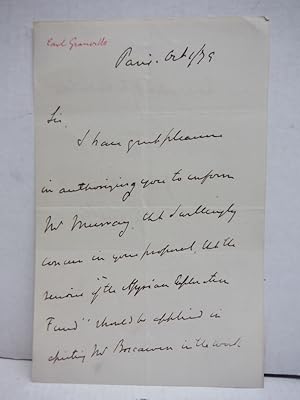 Earl Granville
Paris. Oct 1/79
Sir,
I have great pleasure
in authorizing you to inform
Mr Murray, that I willingly
concur in your proposal, that the
of the Assyrian Exploration
Fund" should be applied in
Mr Boscawen in the work